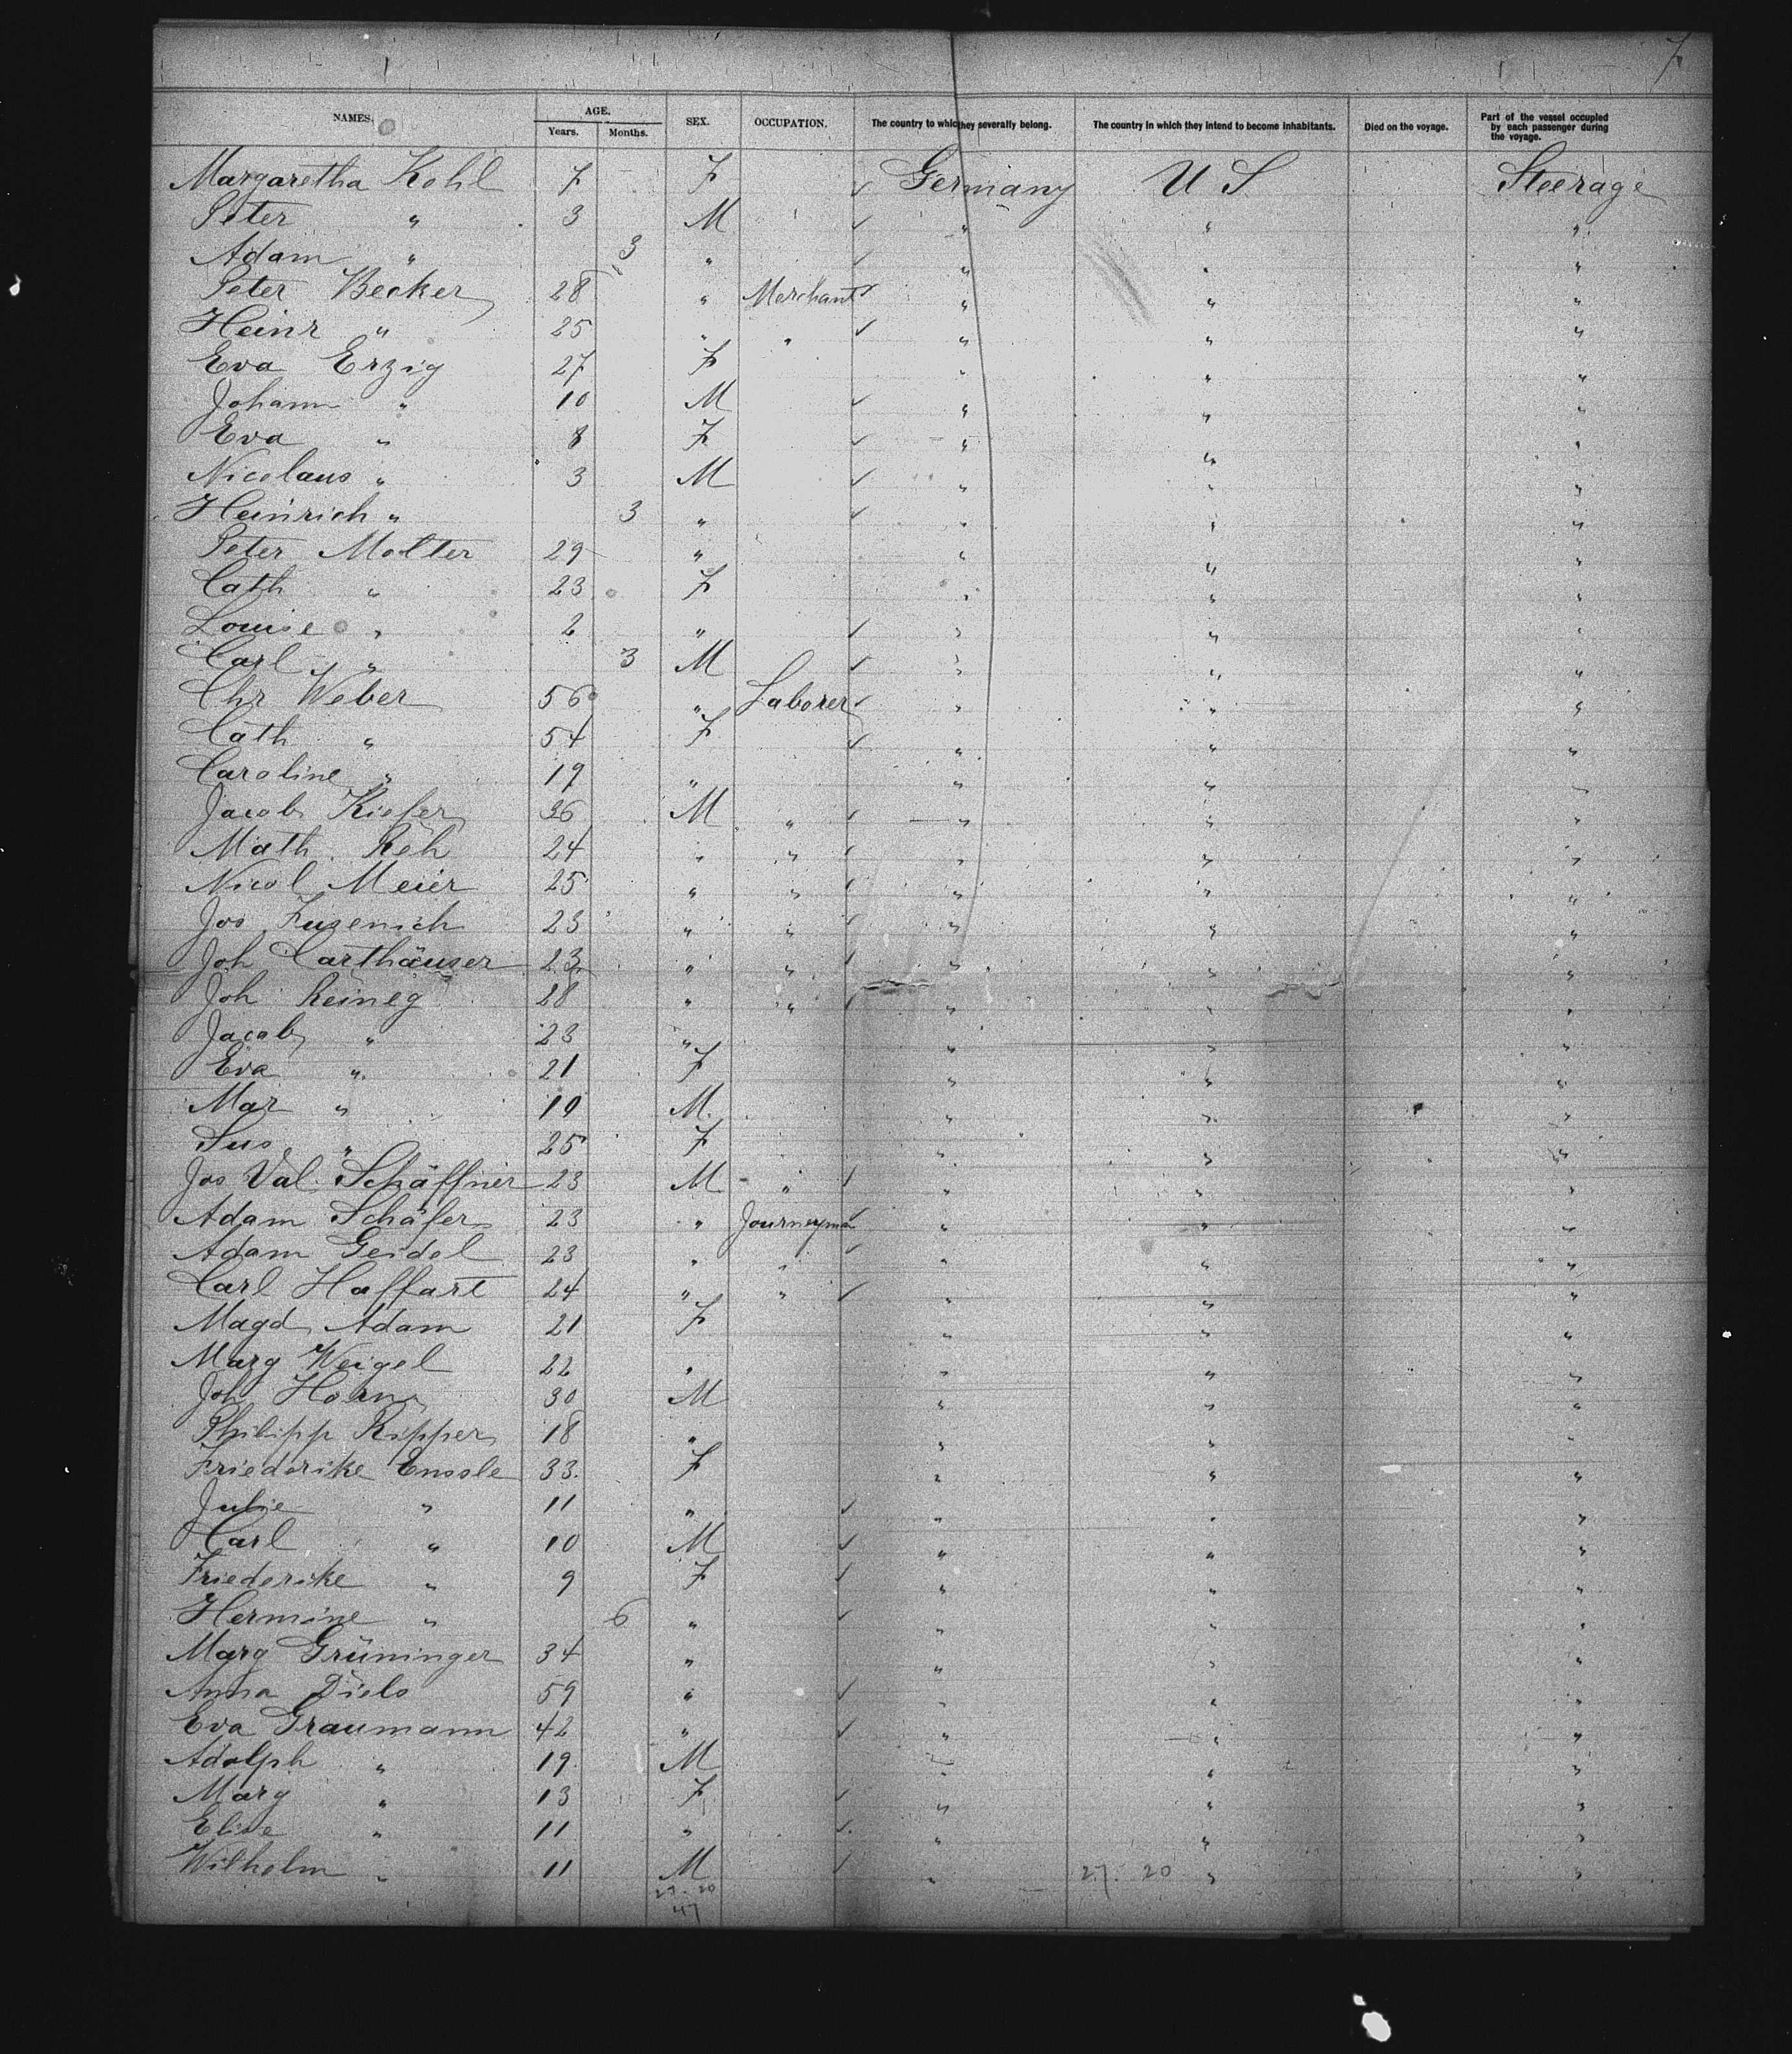 7
NAMES. AGE. Years. Months. SEX. OCCUPATION. The country to which they severally belong. The country in which they intend to become inhabitants. Died on the voyage. Part of the vessel occupied by each passenger during the voyage.
Margaretha Kohl 7 F ✓ Germany U S Steerage
Peter " 3 M ✓ " " "
Adam " 3 " ✓ " " "
Peter Becker 28 " Merchant ✓ " " "
Heinr " 25 " " ✓ " " "
Eva Erzig 27 F " " "
Johann " 10 M ✓ " " "
Eva " 8 F ✓ " " "
Nicolaus " 3 M ✓ " " "
Heinrich " 3 " ✓ " " "
Peter Molter 29 " " " "
Cath " 23 F " " "
Louise " 2 " ✓ " " "
Carl " 3 M ✓ " " "
Chr Weber 56 " Laborer ✓ " " "
Cath " 54 F ✓ " " "
Caroline " 19 " " " "
Jacob Kiefer 36 M " ✓ " " "
Math. Reh 24 " " ✓ " " "
Nicol Meier 25 " " ✓ " " "
Jos Fusenich 23 " " ✓ " " "
Joh Carthäuser 23 " " ✓ " " "
Joh Reineg 28 " " ✓ " " "
Jacob " 23 " " " "
Eva " 21 F " " "
Mar " 19 M " " "
Sus " 25 F " " "
Jos Val. Schäffner 23 M " ✓ " " "
Adam Schäfer 23 " Journeyma ✓ " " "
Adam Geidel 23 " " ✓ " " "
Carl Haffart 24 " " ✓ " " "
Magd Adam 21 F " " "
Marg Weigel 22 " " " "
Joh Horn 30 M " " "
Philipp Ripper 18 " " " "
Friederike Enssle 33 F " " "
Julie " 11 " ✓ " " "
Carl " 10 M ✓ " " "
Friederike " 9 F ✓ " " "
Hermine " 6 " ✓ " " "
Marg Grüninger 34 " " " "
Anna Diels 59 " ✓ " " "
Eva Graumann 42 " ✓ " " "
Adolph " 19 M " " "
Marg " 13 F ✓ " " "
Elise " 11 " ✓ " " "
Wilhelm " 11 M ✓ " 27. 20 " "
27. 20
47